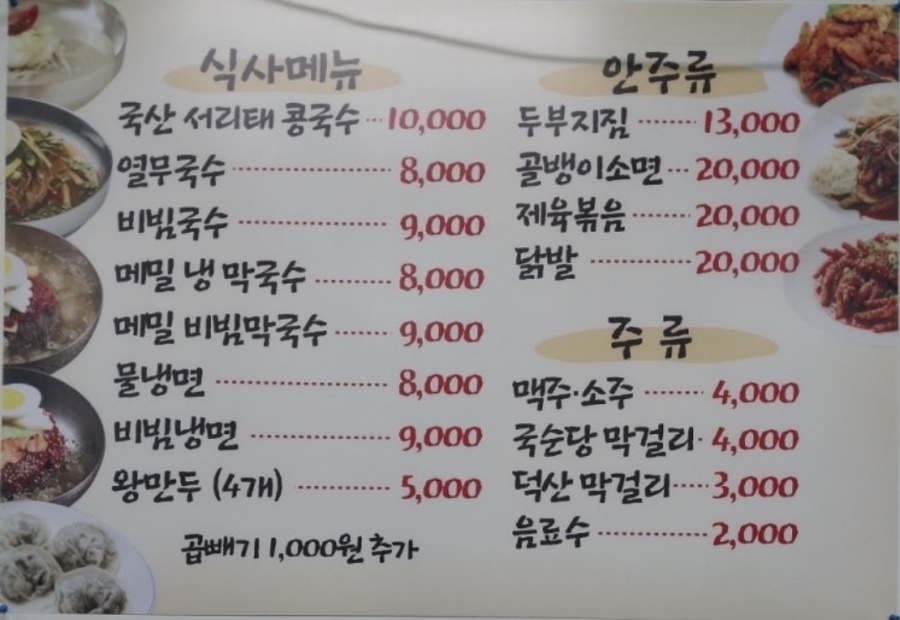 식사메뉴
국산 서리태 콩국수 10,000
열무국수 8,000
비빔국수 9,000
메밀 냉 막국수 8,000
메밀 비빔막국수 9,000
물냉면 8,000
비빔냉면 9,000
왕만두 (4개) 5,000
곱빼기 1,000원 추가
안주류
두부지짐 13,000
골뱅이소면 20,000
제육볶음 20,000
닭발 20,000
주류
맥주·소주 4,000
국순당 막걸리 4,000
덕산 막걸리 3,000
음료수 2,000